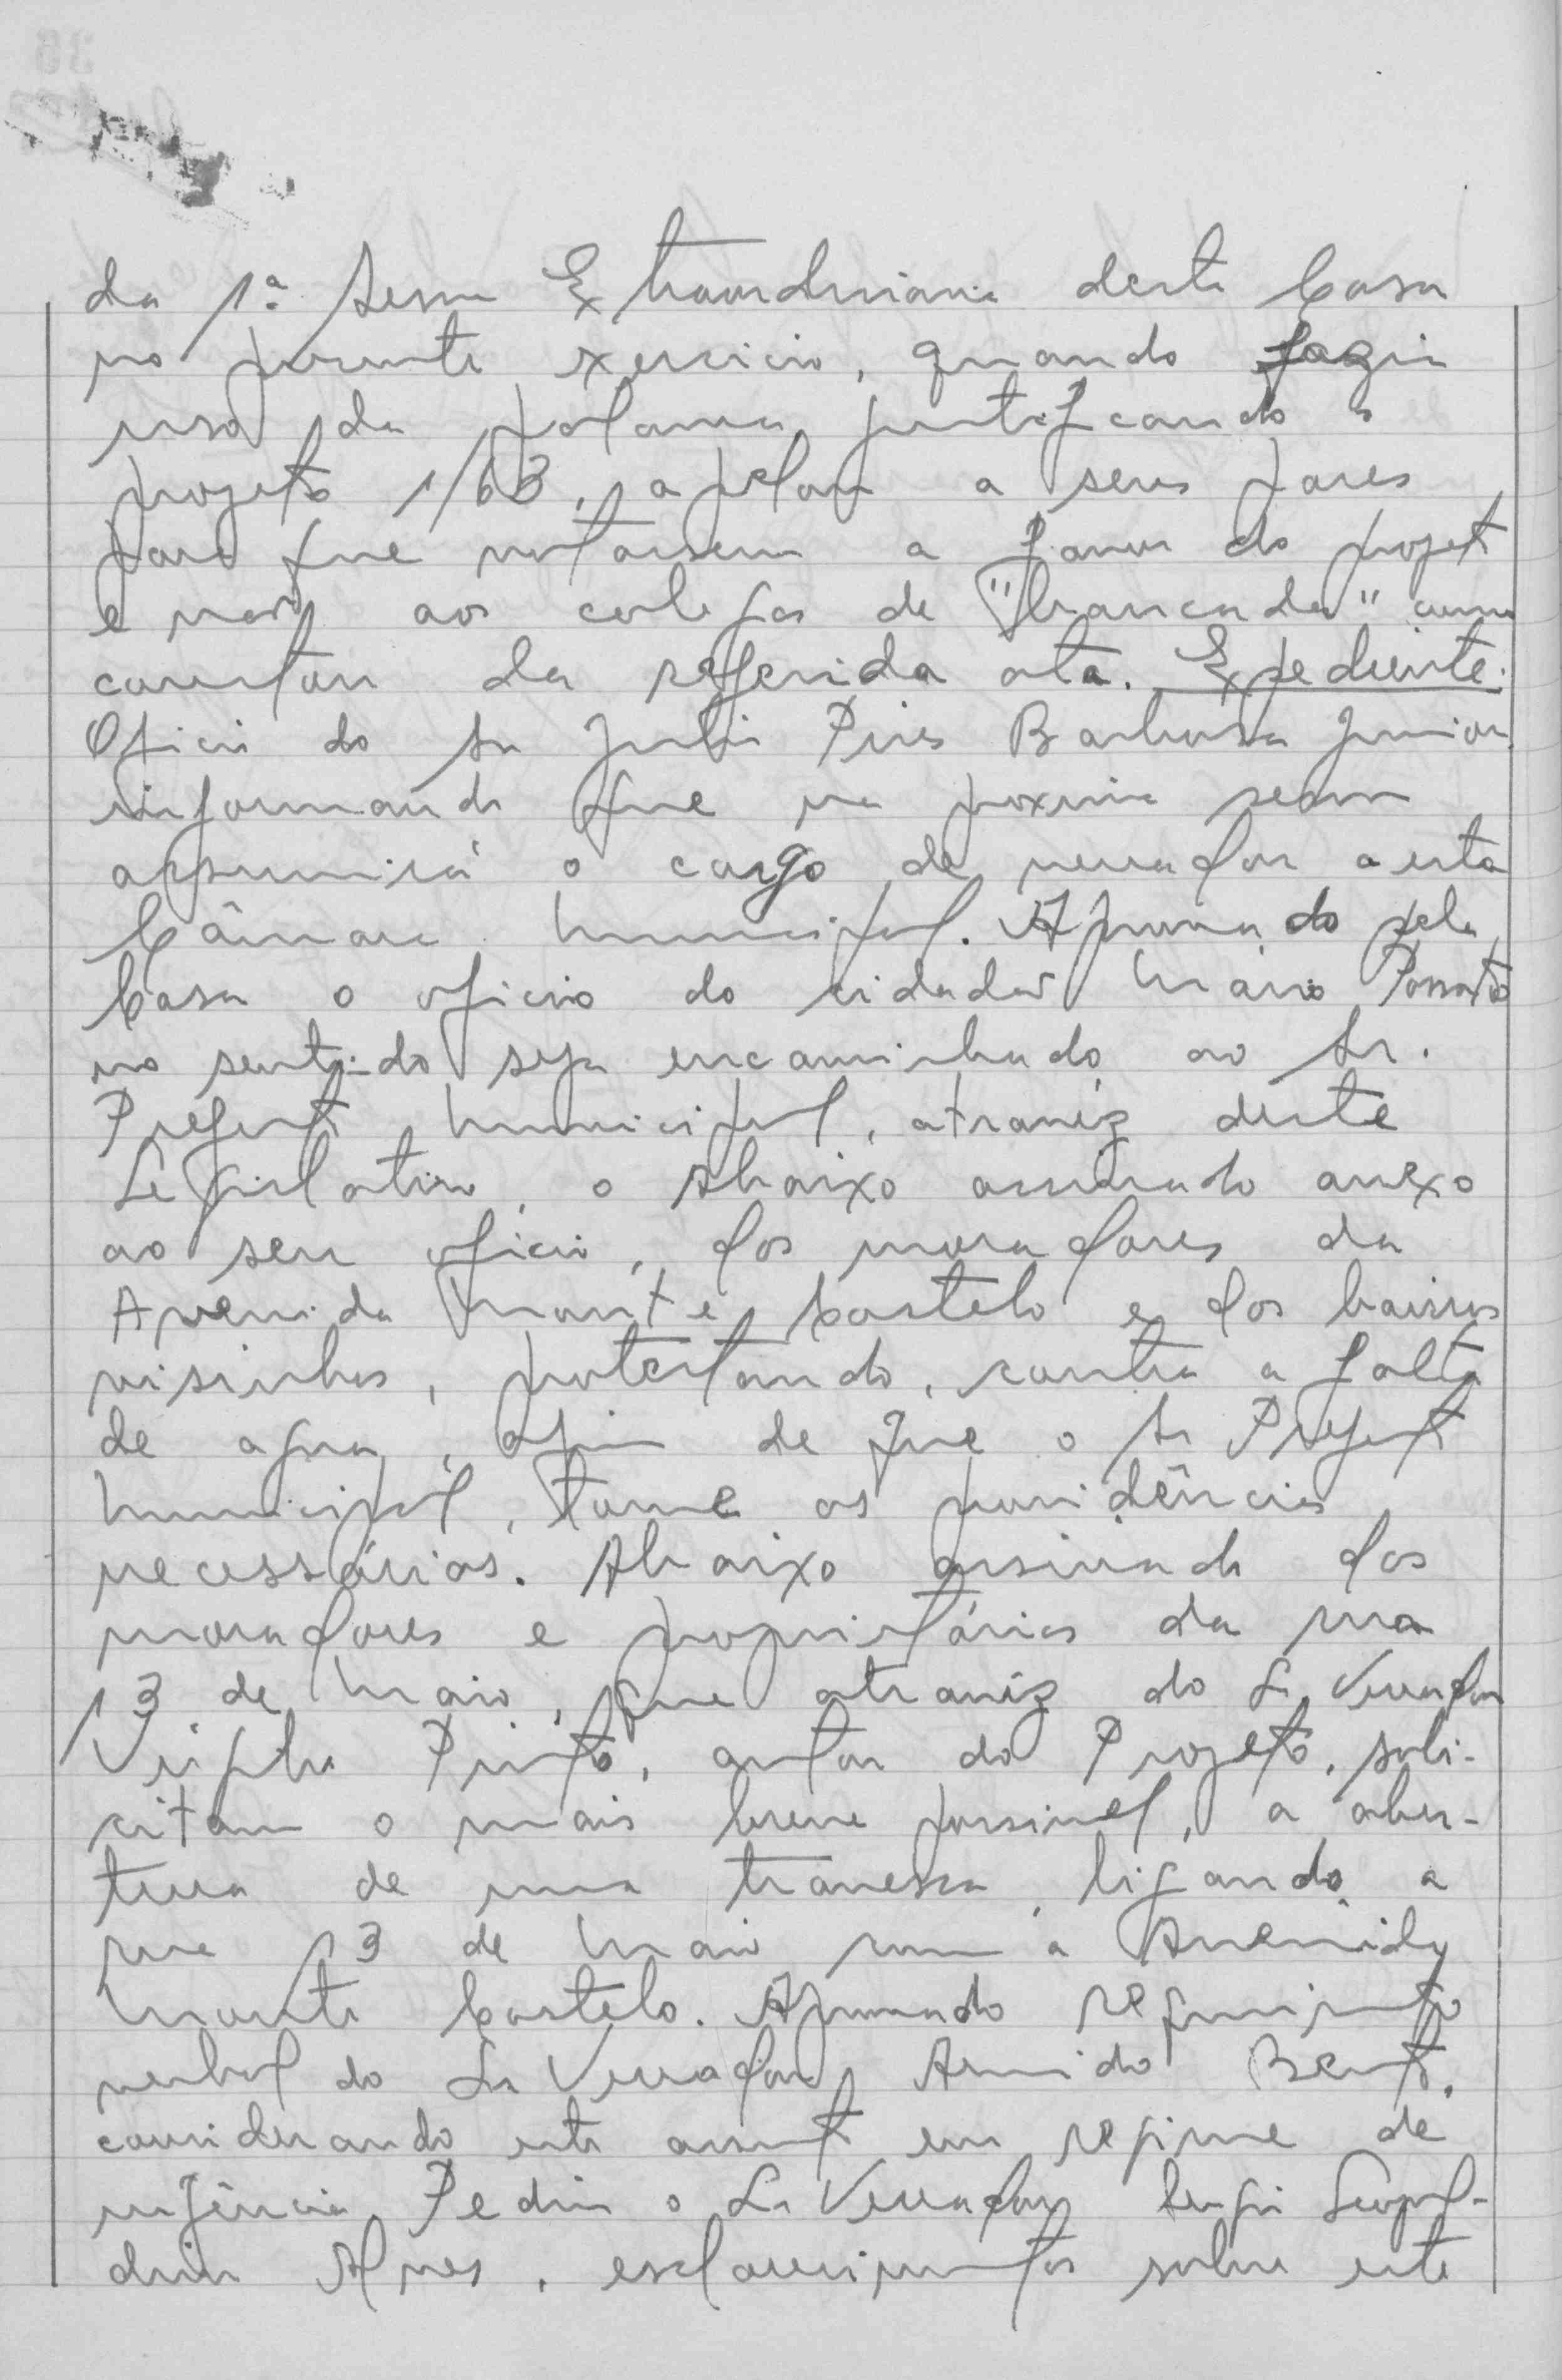 da 1ª Sessão Extraordinaria desta Casa
no presente exercicio, quando fazia
uso da palavra justificando o
projeto 1/63, apelou a seus pares
para que votassem a favor do projeto
e não aos colegas de "bancada" como
constou da referida ata. Expediente:
Oficio do Sr Julio Pires Barbosa Junior
informando que na proxima sessão
assumirá o cargo de vereador a esta
Câmara Municipal. Aprovado pela
Casa o oficio do cidadão Mário Passato
no sentido seja encaminhado ao Sr.
Prefeito Municipal, atravéz deste
Legislativo, o Abaixo assinado anexo
ao seu oficio, dos moradores da
Avenida Monte Castelo e dos bairros
visinhos, protestando, contra a falta
de agua, afim de que o Sr Prefeito
Municipal, tome as providências
necessárias. Abaixo assinado dos
moradores e proprietários da rua
13 de Maio, que atravéz do Sr Vereador
Virgilio Pinto, autor do Projeto, soli-
citam o mais breve possivel, a aber-
tura de uma travessa, ligando a
rua 13 de Maio com a Avenida
Monte Castelo. Aprovado requerimento
verbal do Sr Vereador Armido Bento,
considerando este assunto em regime de
urgência. Pediu o Sr Vereador Leopol-
dino Alves, esclarecimentos sobre este